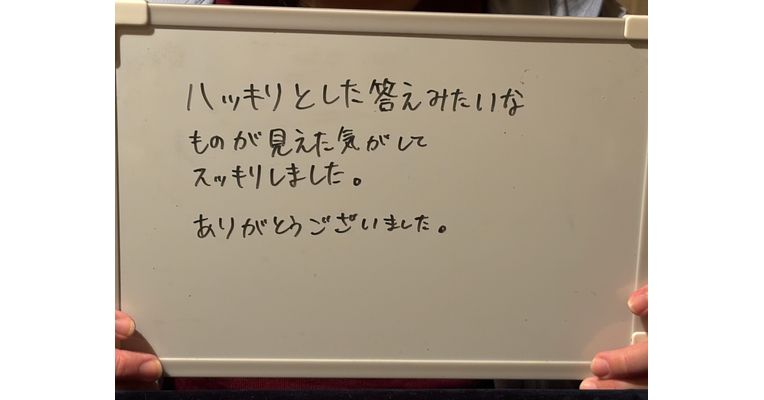 ハッキリとした答えみたいな
ものが見えた気がして
スッキリしました。
ありがとうございました。